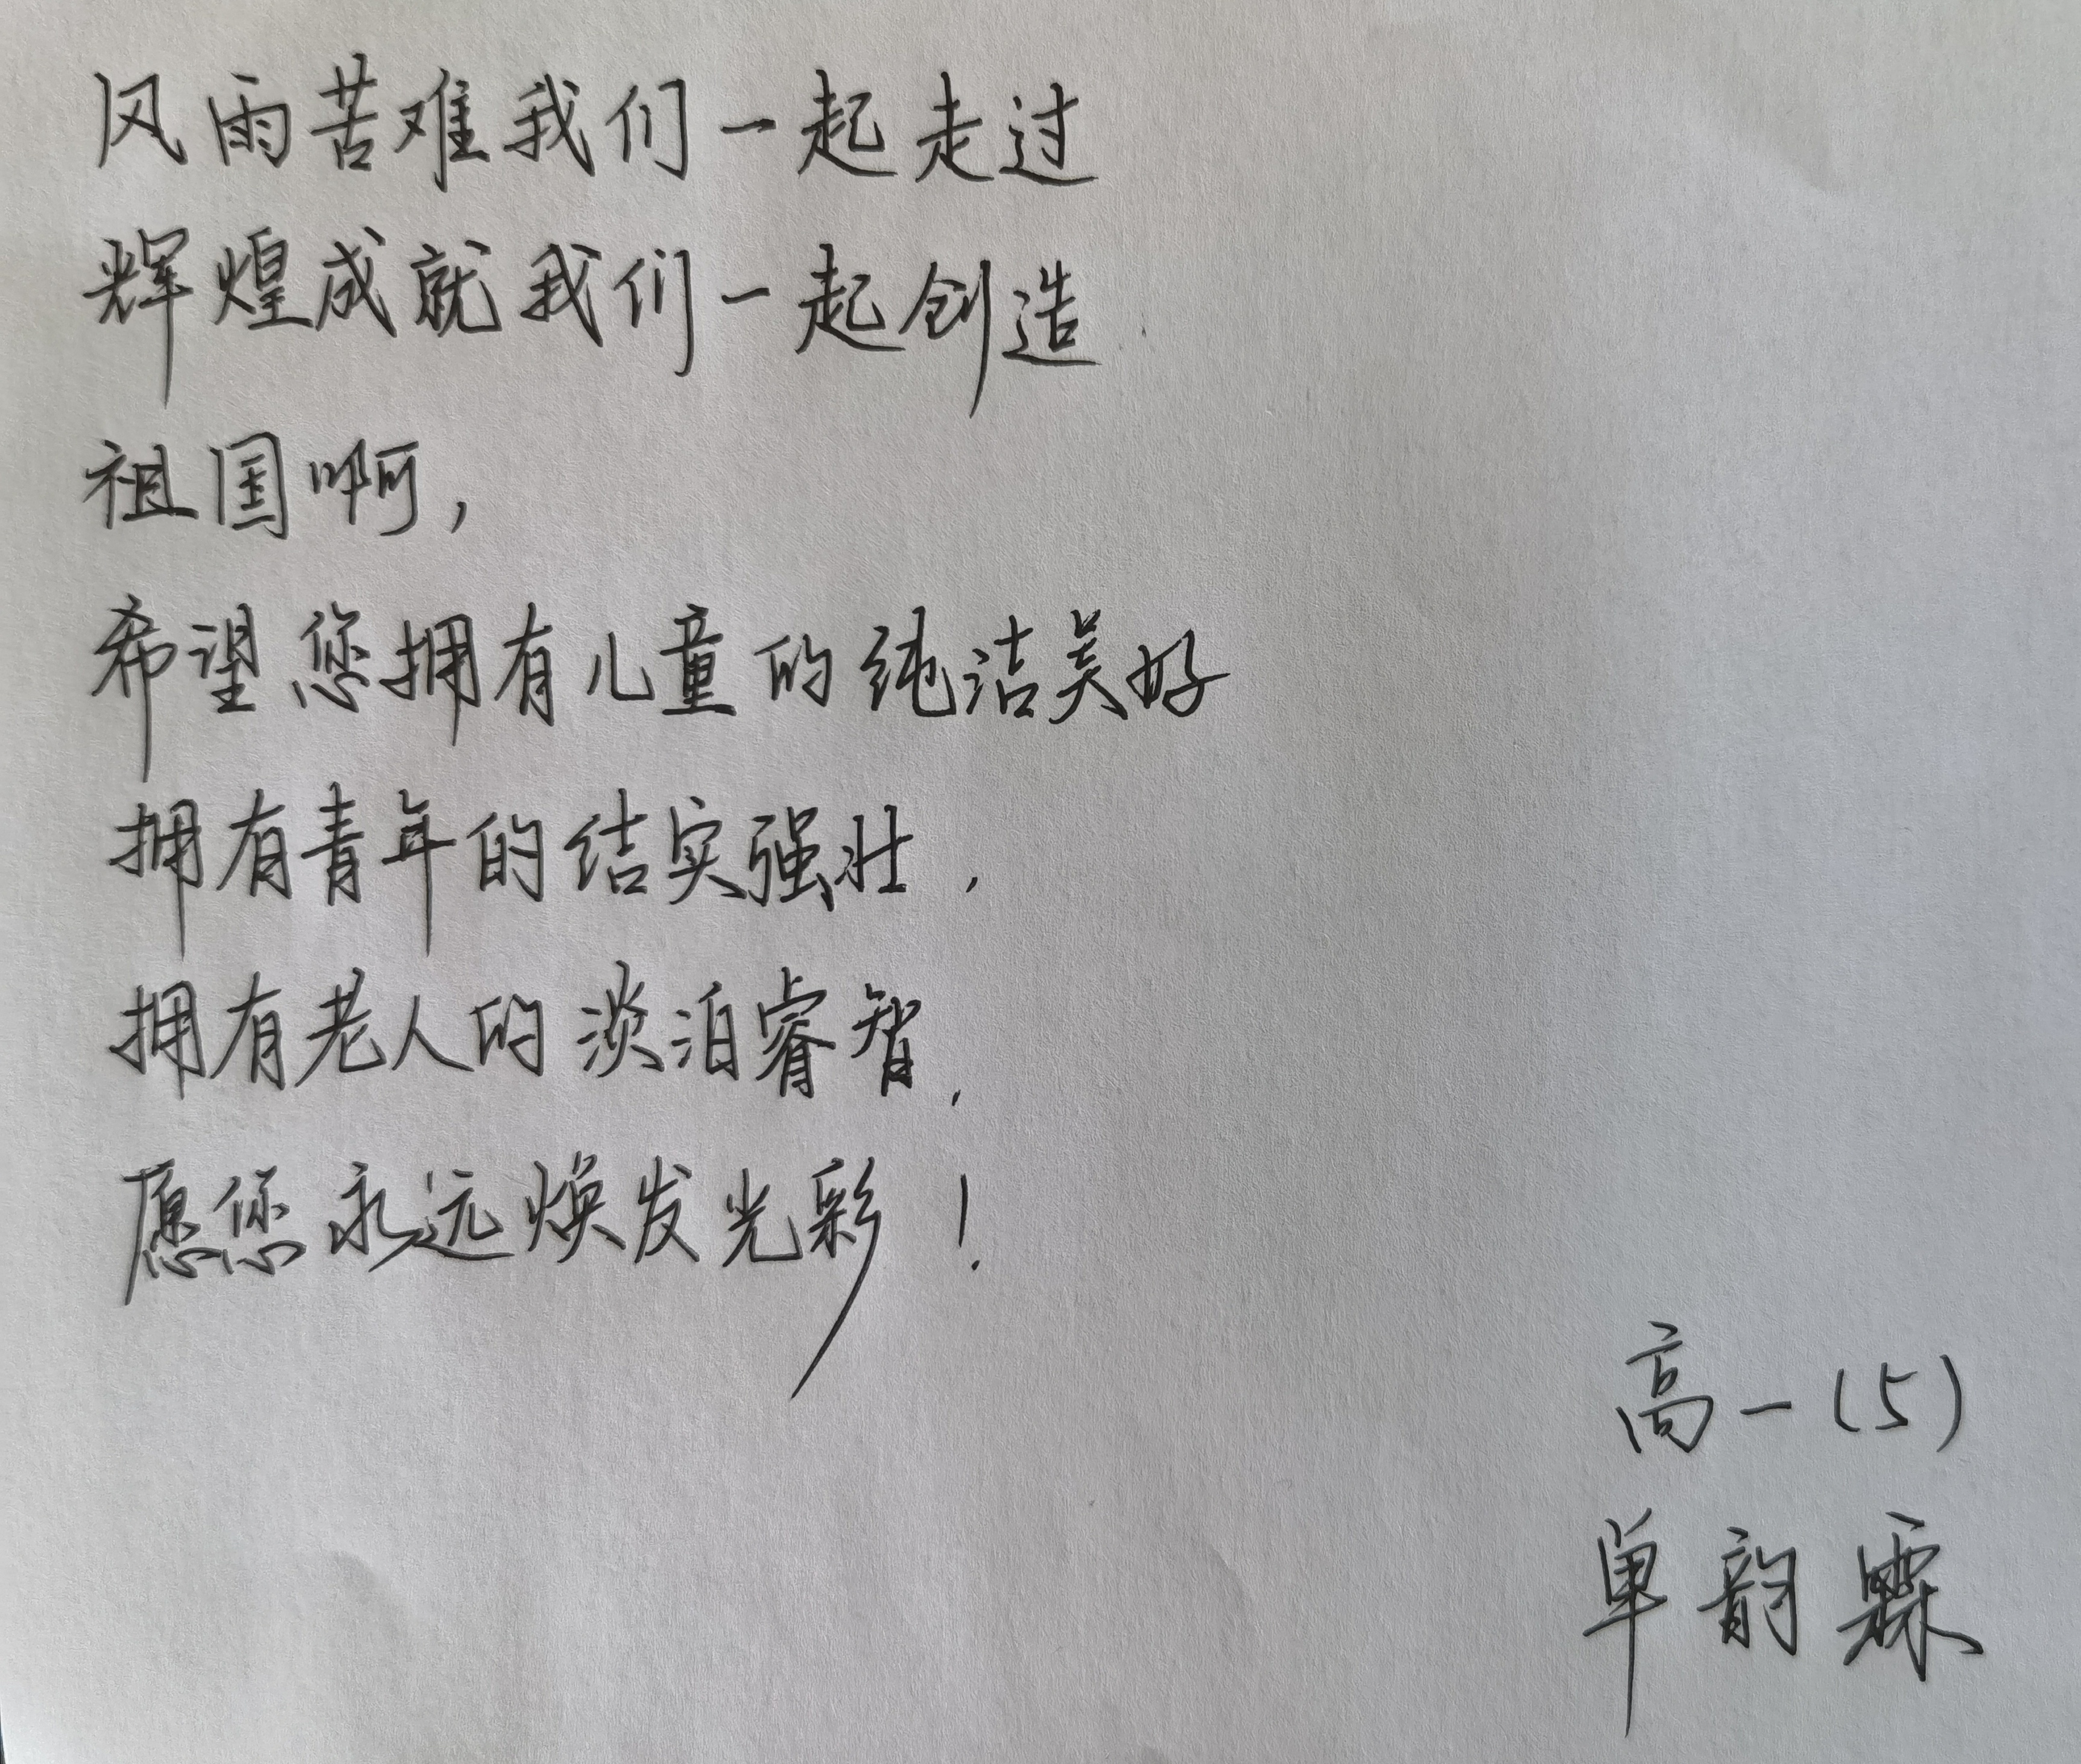 风雨苦难我们一起走过
辉煌成就我们一起创造
祖国啊,
希望您拥有儿童的纯洁美好
拥有青年的结实强壮,
拥有老人的淡泊睿智,
愿您永远焕发光彩!
高一(5)
单韵霖